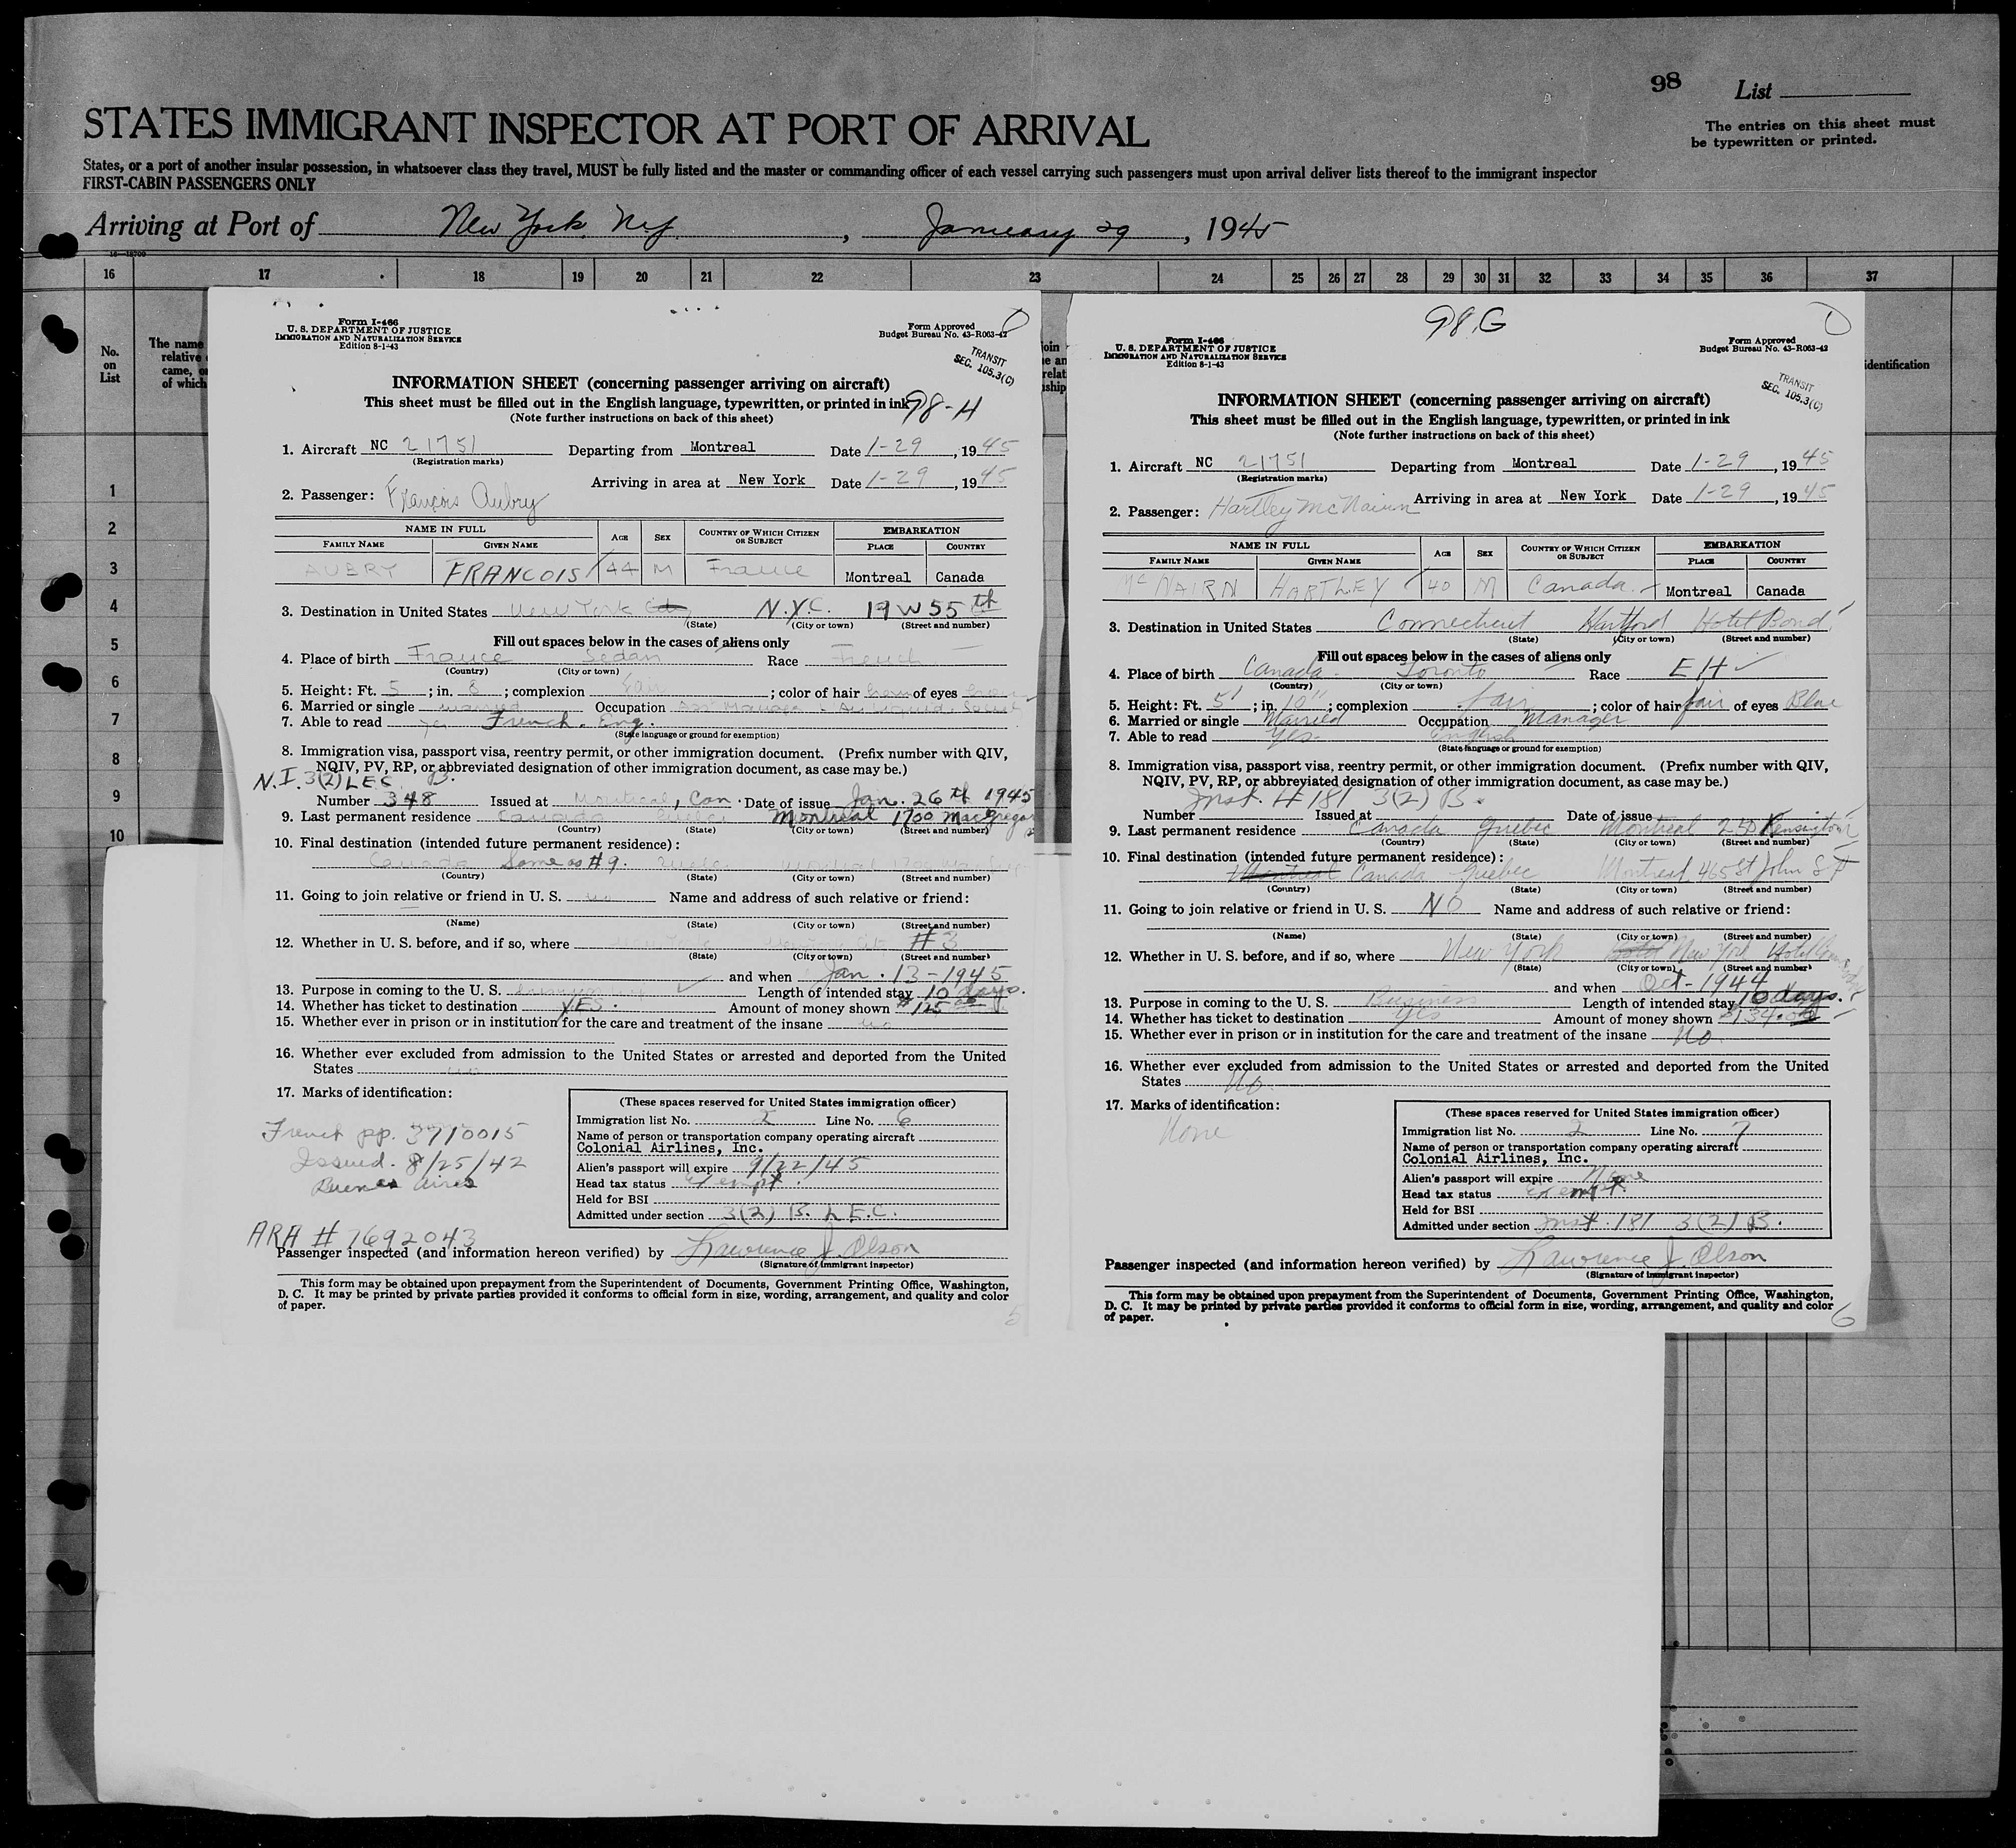 98 List
The entries on this sheet must
be typewritten or printed.
STATES IMMIGRANT INSPECTOR AT PORT OF ARRIVAL
States, or a port of another insular possession, in whatsoever class they travel, MUST be fully listed and the master or commanding officer of each vessel carrying such passengers must upon arrival deliver lists thereof to the immigrant inspector
FIRST-CABIN PASSENGERS ONLY
Arriving at Port of New York, N.Y. , January 29 , 1945
16 17 18 19 20 21 22 23 24 25 26 27 28 29 30 31 32 33 34 35 36 37
No.
on
List
The name
relative
came, o
of which
join
relat
ship
identification
1
2
3
4
5
6
7
8
9
10
Form I-466
U. S. DEPARTMENT OF JUSTICE
IMMIGRATION AND NATURALIZATION SERVICE
Edition 8-1-43
Form Approved
Budget Bureau No. 43-R063-42
TRANSIT
SEC. 105.3(C)
INFORMATION SHEET (concerning passenger arriving on aircraft)
This sheet must be filled out in the English language, typewritten, or printed in ink
98-H
(Note further instructions on back of this sheet)
1. Aircraft NC 21751 Departing from Montreal Date 1-29 , 1945
(Registration marks)
Arriving in area at New York Date 1-29 , 1945
2. Passenger: François Aubry
NAME IN FULL AGE SEX COUNTRY OF WHICH CITIZEN OR SUBJECT EMBARKATION
FAMILY NAME GIVEN NAME PLACE COUNTRY
AUBRY FRANCOIS 44 M France Montreal Canada
3. Destination in United States New York City N.Y.C. 19 W 55th
(State) (City or town) (Street and number)
Fill out spaces below in the cases of aliens only
4. Place of birth France Sedan Race French
(Country) (City or town)
5. Height: Ft. 5 ; in. 8 ; complexion fair ; color of hair brown of eyes brown
6. Married or single married Occupation Asst Manager
7. Able to read yes French. Eng.
(State language or ground for exemption)
8. Immigration visa, passport visa, reentry permit, or other immigration document. (Prefix number with QIV,
NQIV, PV, RP, or abbreviated designation of other immigration document, as case may be.)
N.I. 3(2) LEC B.
Number 348 Issued at Montreal, Can. Date of issue Jan. 26th 1945
9. Last permanent residence Canada Quebec Montreal 1700 MacGregor
(Country) (State) (City or town) (Street and number)
10. Final destination (intended future permanent residence):
Canada Same as #9. Quebec Montreal
(Country) (State) (City or town) (Street and number)
11. Going to join relative or friend in U. S. no Name and address of such relative or friend:
(Name) (State) (City or town) (Street and number)
12. Whether in U. S. before, and if so, where New York New York City #3
(State) (City or town) (Street and number)
and when Jan. 13-1945
13. Purpose in coming to the U. S. Length of intended stay 10 days.
14. Whether has ticket to destination YES. Amount of money shown $125.00
15. Whether ever in prison or in institution for the care and treatment of the insane no
16. Whether ever excluded from admission to the United States or arrested and deported from the United
States no
17. Marks of identification:
French pp. 3710015
Issued. 8/25/42
Buenos Aires
ARA # 7692043
(These spaces reserved for United States immigration officer)
Immigration list No. 2 Line No. 6
Name of person or transportation company operating aircraft
Colonial Airlines, Inc.
Alien's passport will expire 9/22/45
Head tax status Exempt.
Held for BSI
Admitted under section 3(2) B. L.E.C.
Passenger inspected (and information hereon verified) by Lawrence J. Olson
(Signature of immigrant inspector)
This form may be obtained upon prepayment from the Superintendent of Documents, Government Printing Office, Washington,
D. C. It may be printed by private parties provided it conforms to official form in size, wording, arrangement, and quality and color
of paper.
5
98.G
Form I-466
U. S. DEPARTMENT OF JUSTICE
IMMIGRATION AND NATURALIZATION SERVICE
Edition 8-1-43
Form Approved
Budget Bureau No. 43-R063-42
TRANSIT
SEC. 105.3(C)
INFORMATION SHEET (concerning passenger arriving on aircraft)
This sheet must be filled out in the English language, typewritten, or printed in ink
(Note further instructions on back of this sheet)
1. Aircraft NC 21751 Departing from Montreal Date 1-29 , 1945
(Registration marks)
Arriving in area at New York Date 1-29 , 1945
2. Passenger: Hartley McNairn
NAME IN FULL AGE SEX COUNTRY OF WHICH CITIZEN OR SUBJECT EMBARKATION
FAMILY NAME GIVEN NAME PLACE COUNTRY
McNAIRN HARTLEY 40 M Canada Montreal Canada
3. Destination in United States Connecticut Hartford Hotel Bond
(State) (City or town) (Street and number)
Fill out spaces below in the cases of aliens only
4. Place of birth Canada Toronto Race EH
(Country) (City or town)
5. Height: Ft. 5' ; in. 10" ; complexion fair ; color of hair fair of eyes Blue
6. Married or single Married Occupation Manager
7. Able to read Yes English
(State language or ground for exemption)
8. Immigration visa, passport visa, reentry permit, or other immigration document. (Prefix number with QIV,
NQIV, PV, RP, or abbreviated designation of other immigration document, as case may be.)
Inst. # 181 3(2) B.
Number Issued at Date of issue
9. Last permanent residence Canada Quebec Montreal 250 Kensington
(Country) (State) (City or town) (Street and number)
10. Final destination (intended future permanent residence):
Montreal Canada Quebec Montreal 465 St John St
(Country) (State) (City or town) (Street and number)
11. Going to join relative or friend in U. S. NO Name and address of such relative or friend:
(Name) (State) (City or town) (Street and number)
12. Whether in U. S. before, and if so, where New York New York Hotel
(State) (City or town) (Street and number)
and when Oct-1944
13. Purpose in coming to the U. S. Business Length of intended stay 10 days.
14. Whether has ticket to destination Yes Amount of money shown $134.00
15. Whether ever in prison or in institution for the care and treatment of the insane No
16. Whether ever excluded from admission to the United States or arrested and deported from the United
States No
17. Marks of identification:
None
(These spaces reserved for United States immigration officer)
Immigration list No. 2 Line No. 7
Name of person or transportation company operating aircraft
Colonial Airlines, Inc.
Alien's passport will expire None
Head tax status Exempt.
Held for BSI
Admitted under section Inst. 181 3(2) B.
Passenger inspected (and information hereon verified) by Lawrence J. Olson
(Signature of immigrant inspector)
This form may be obtained upon prepayment from the Superintendent of Documents, Government Printing Office, Washington,
D. C. It may be printed by private parties provided it conforms to official form in size, wording, arrangement, and quality and color
of paper.
6